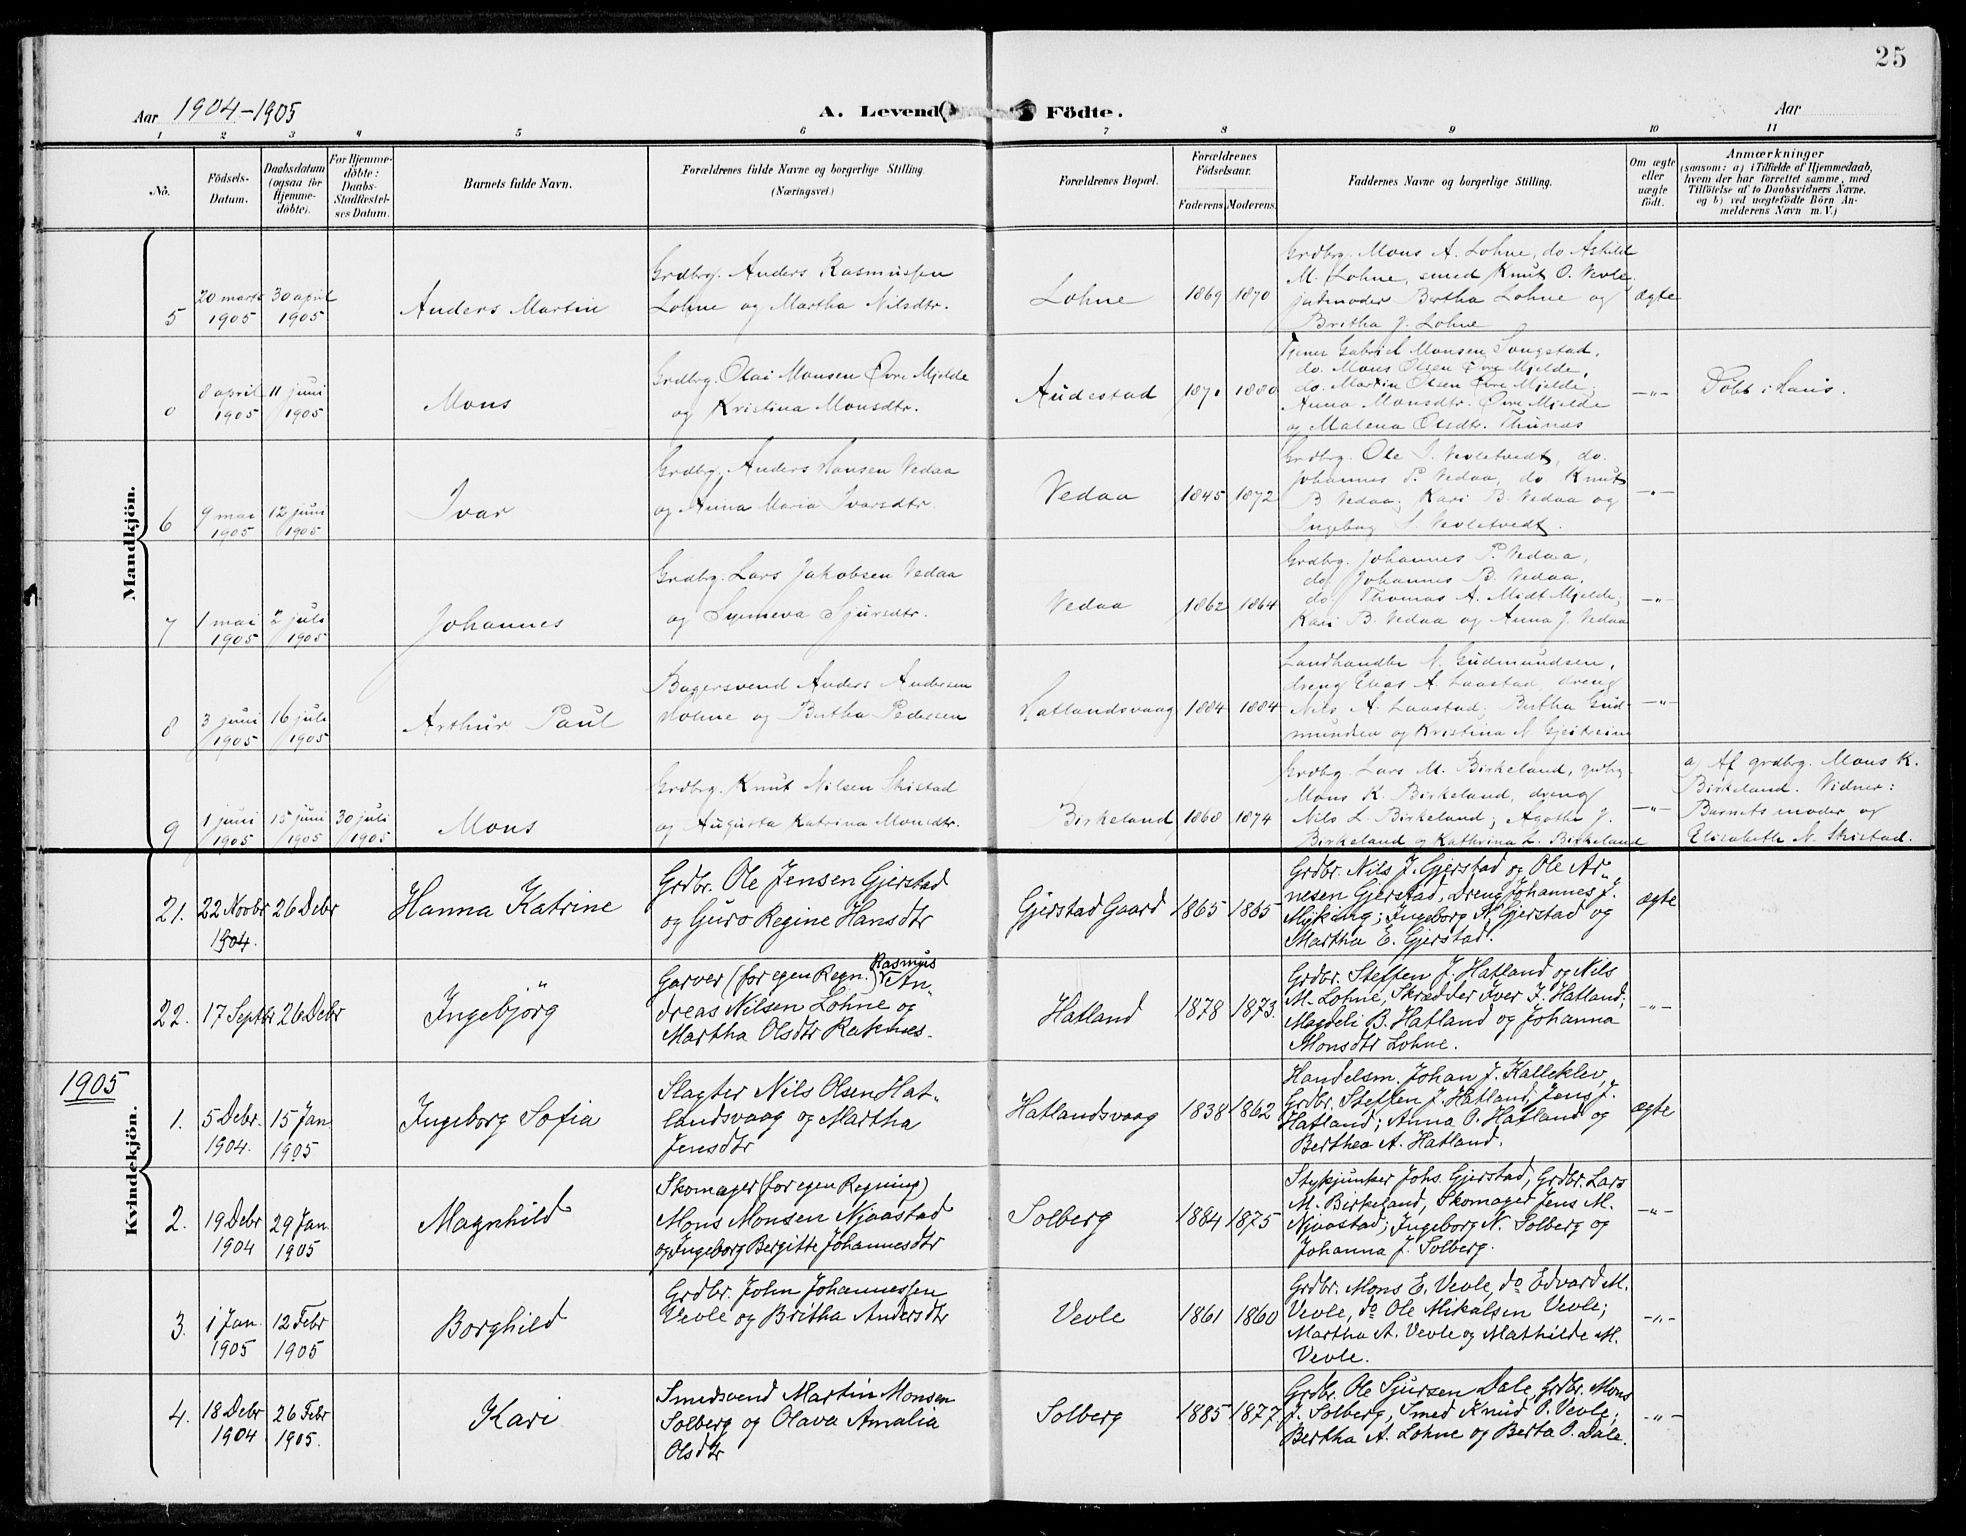 25
Aar 1904-1905
A. Levende Födte.
Aar
1 2 3 4 5 6 7 8 9 10 11
No.
Födsels-Datum.
Daabsdatum (ogsaa for Hjemme-döbte).
For Hjemme-döbte: Daabs-Stadfæstel-ses Datum.
Barnets fulde Navn.
Forældrenes fulde Navne og borgerlige Stilling. (Næringsvei.)
Forældrenes Bopæl.
Forældrenes Födselsaar.
Faderens. Moderens.
Faddernes Navne og borgerlige Stilling.
Om ægte eller uægte födt.
Anmærkninger
(saasom: a) i Tilfælde af Hjemmedaab,
hvem der har forrettet samme, med
Tilföielse af to Daabsvidners Navne.
og b) ved uægtefödte Börn An-
melderens Navn m. V.)
Mandkjön.
5
20 marts 1905
30 april 1905
Anders Martin
Grdbrg. Anders Rasmussen
Lohne og Martha Nilsdtr.
Lohne
1869 1870
Grdbrg. Mons A. Lohne, do Askild
M. Lohne, smed Knut O. Vevle
jordmoder Bertha Lohne og
Britha J. Lohne
ægte
8 april 1905
11 juni 1905
Mons
Grdbrg. Olai Monsen Övre Mjelde
og Kristina Monsdtr.
Audestad
1871 1880
Tjener Gabriel Monsen Songstad,
do. Mons Olsen Övre Mjelde,
do. Martin Olsen Övre Mjelde;
Anna Monsdtr. Övre Mjelde
og Malena Olsdtr. Thunæs
-"-
Döbt i Haus.
6
9 mai 1905
12 juni 1905
Ivar
Grdbrg. Anders Hansen Vedaa
og Anna Maria Ivarsdtr.
Vedaa
1845 1872
Grdbrg. Ole I. Vevletvedt, do.
Johannes P. Vedaa, do Knut
B Vedaa; Kari B. Vedaa og
Ingeborg I. Vevletvedt.
-"-
7
1 mai 1905
2 juli 1905
Johannes
Grdbrg. Lars Jakobsen Vedaa
og Synneva Sjursdtr.
Vedaa
1862 1864
Grdbrg. Johannes P. Vedaa,
do Johannes B. Vedaa,
do Thomas A. Midt Mjelde;
Kari B. Vedaa og Anna J. Vedaa
-"-
8
3 juni 1905
16 juli 1905
Arthur Paul
Bagersvend Anders Andersen
Holme og Bertha Pedersen
Hatlandsvaag
1884 1884
Landhandler N. Gudmundsen,
dreng Elias A. Laastad, dreng
Nils A. Laastad; Bertha Gud-
mundsen og Kristina N. Gjeitreim
-"-
9
1 juni 1905
15 juni 1905
30 juli 1905
Mons
Grdbrg. Knut Nilsen Skistad
og Augusta Katrina Monsdtr.
Birkeland
1868 1874
Grdbrg. Lars M. Birkeland, grdbrg.
Mons K. Birkeland, dreng
Nils L. Birkeland; Agothe J.
Birkeland og Kathrina L. Birkeland
-"-
a) Af grdbrg. Mons K.
Birkeland. Vidner:
Barnets moder og
Elisabeth N. Skistad.
Kvindekjön.
21.
22 Novbr 1904.
26 Debr
Hanna Katrine
Grdbr. Ole Jensen Gjerstad
og Guro Regine Hansdtr
Gjerstad Gaard
1865 1865
Grdbr. Nils J. Gjerstad og Ole Ar-
nesen Gjerstad, Dreng Johannes J.
Myking; Ingeborg N. Gjerstad og
Martha E. Gjerstad.
ægte
22.
17 Septbr
26 Debr
Ingebjörg
Garver (for egen Regn.) Rasmus An-
dreas Nilsen Lohne og
Martha Olsdtr Raknes.
Hatland
1878 1873.
Grdbr. Steffen J. Hatland og Nils
M. Lohne, Skrædder Iver J. Hatland;
Magdeli B. Hatland og Johanna
Monsdtr Lohne.
-"-
1905
1.
5 Debr. 1904.
15 Jan 1905
Ingeborg Sofia
Slagter Nils Olsen Hat-
landsvaag og Martha
Jensdtr
Hatlandsvaag
1838 1862
Handelsm. Johan J. Kalleklev,
Grdbr. Steffen J. Hatland, Jens J.
Hatland; Anna O. Hatland og
Berthea A. Hatland.
ægte
2.
19 Debr 1904
29 Jan. 1905
Magnhild
Skomager (for egen Regning)
Mons Monsen Njaastad
og Ingeborg Bergitte Johannesdtr
Solberg
1884 1875
Stykjunker Johs. Gjerstad, Grdbr. Lars
M. Birkeland, Skomager Jens M.
Njaastad; Ingeborg N. Solberg og
Johanna J. Solberg.
-"-
3.
1 Jan. 1905
12 Febr 1905
Borghild
Grdbr. John Johannessen
Vevle og Britha Andersdtr
Vevle
1861 1860
Grdbr. Mons E. Vevle, do Edvard M.
Vevle, do Ole Mikalsen Vevle;
Martha A. Vevle og Mathilde M.
Vevle.
-"-
4.
18 Debr 1904
26 Febr 1905.
Kari
Smedsvend Martin Monsen
Solberg og Olava Amalia
Olsdtr
Solberg
1885 1877
Grdbr. Ole Sjursen Dale, Grdbr. Mons
J. Solberg, Smed Knud O. Vevle;
Bertha A. Lohne og Berta O. Dale.
-"-